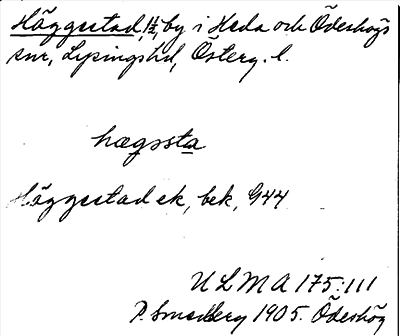 Häggestad, 1/2, by i Heda och Ödeshögs
snr, Lysings hd, Österg. l.
hægssta
Häggestad ek, bek, G44
ULMA 175:111
P. Smedberg 1905. Ödeshög